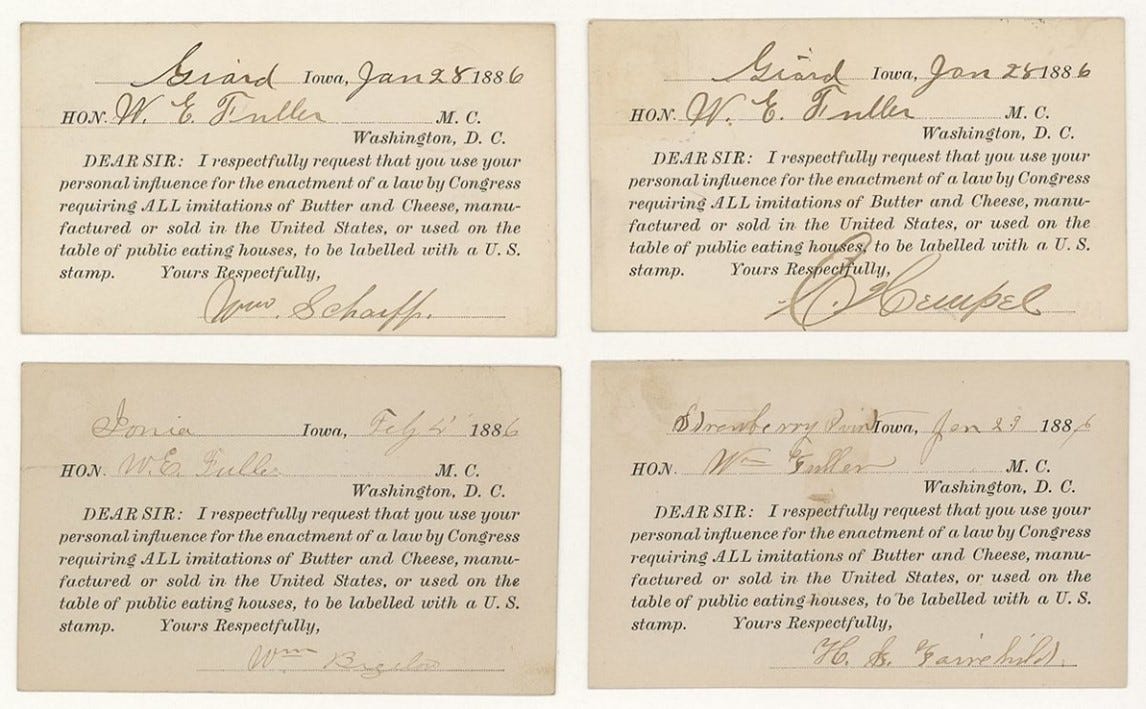 Giard Iowa, Jan 28 1886
HON. W. E. Fuller M. C.
Washington, D. C.
DEAR SIR: I respectfully request that you use your
personal influence for the enactment of a law by Congress
requiring ALL imitations of Butter and Cheese, manu-
factured or sold in the United States, or used on the
table of public eating houses, to be labelled with a U. S.
stamp. Yours Respectfully,
Wm. Scharff.
Giard Iowa, Jan 28 1886
HON. W. E. Fuller M. C.
Washington, D. C.
DEAR SIR: I respectfully request that you use your
personal influence for the enactment of a law by Congress
requiring ALL imitations of Butter and Cheese, manu-
factured or sold in the United States, or used on the
table of public eating houses, to be labelled with a U. S.
stamp. Yours Respectfully,
Hempel
Ionia Iowa, 1886
HON. W. E. Fuller M. C.
Washington, D. C.
DEAR SIR: I respectfully request that you use your
personal influence for the enactment of a law by Congress
requiring ALL imitations of Butter and Cheese, manu-
factured or sold in the United States, or used on the
table of public eating houses, to be labelled with a U. S.
stamp. Yours Respectfully,
Wm Bigelow
Strawberry Point Iowa, Jan 23 1886
HON. Wm Fuller M. C.
Washington, D. C.
DEAR SIR: I respectfully request that you use your
personal influence for the enactment of a law by Congress
requiring ALL imitations of Butter and Cheese, manu-
factured or sold in the United States, or used on the
table of public eating houses, to be labelled with a U. S.
stamp. Yours Respectfully,
H. Fairchild.